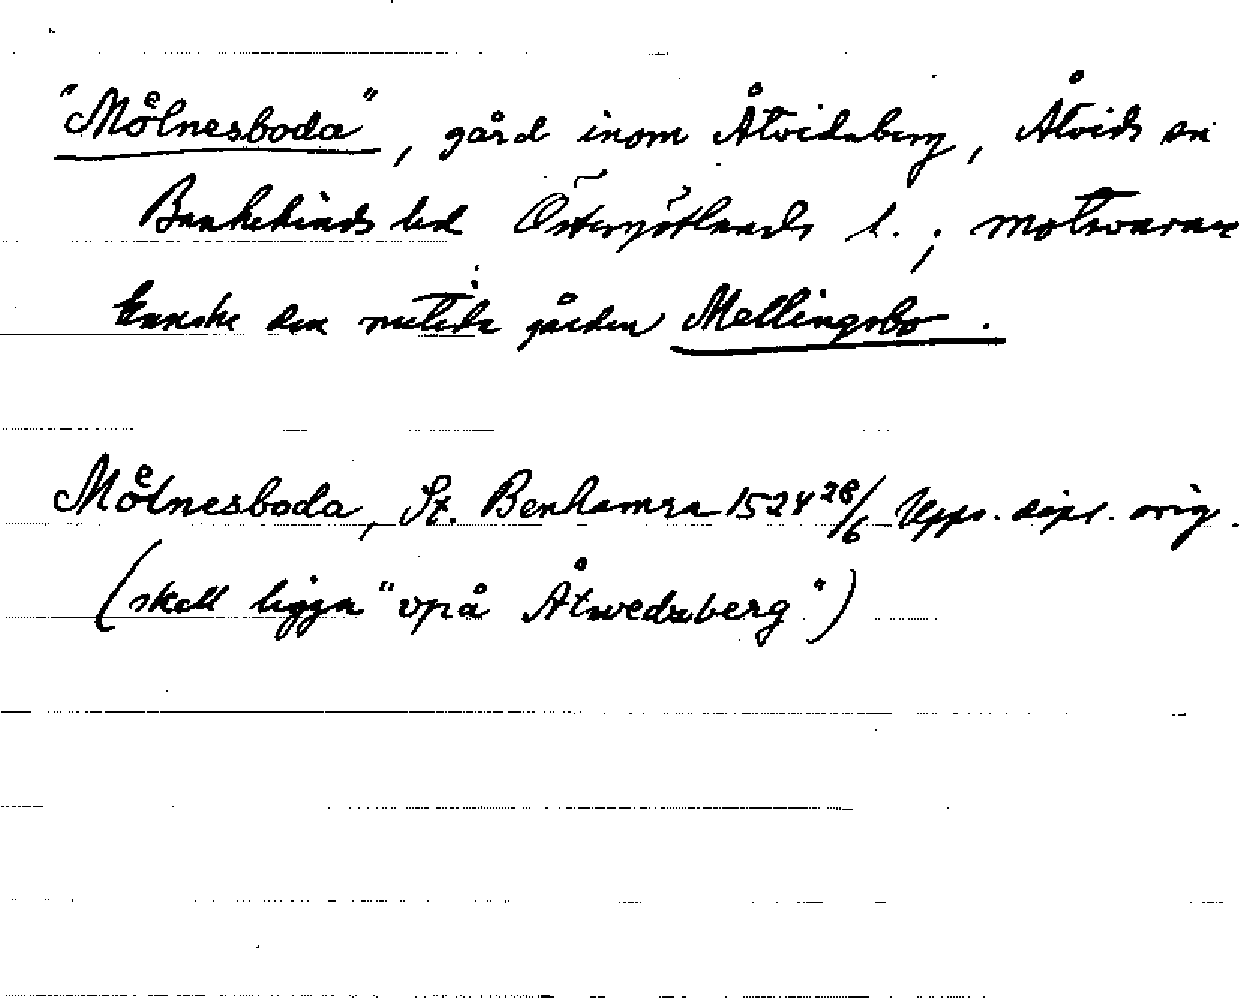 "Moͤlnesboda", gård inom Åtvidaberg, Åtvids sn
Bankekinds hd Östergötlands l.; motsvarar
kanske den nutida gården Mellingsbo.
Moͤlnesboda, St. Benhamra 1524 28/6 Upps. dipl. orig.
(skall ligga "vpå Åtwedaberg")